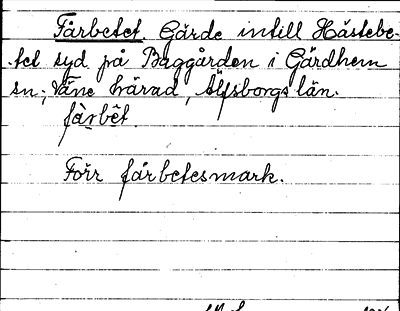 Fårbetet. Gärde intill Hästebe-
tet syd på Baggården i Gärdhem
sn, Väne härad, Älfsborgs län.
fårbet
Förr fårbetesmark.